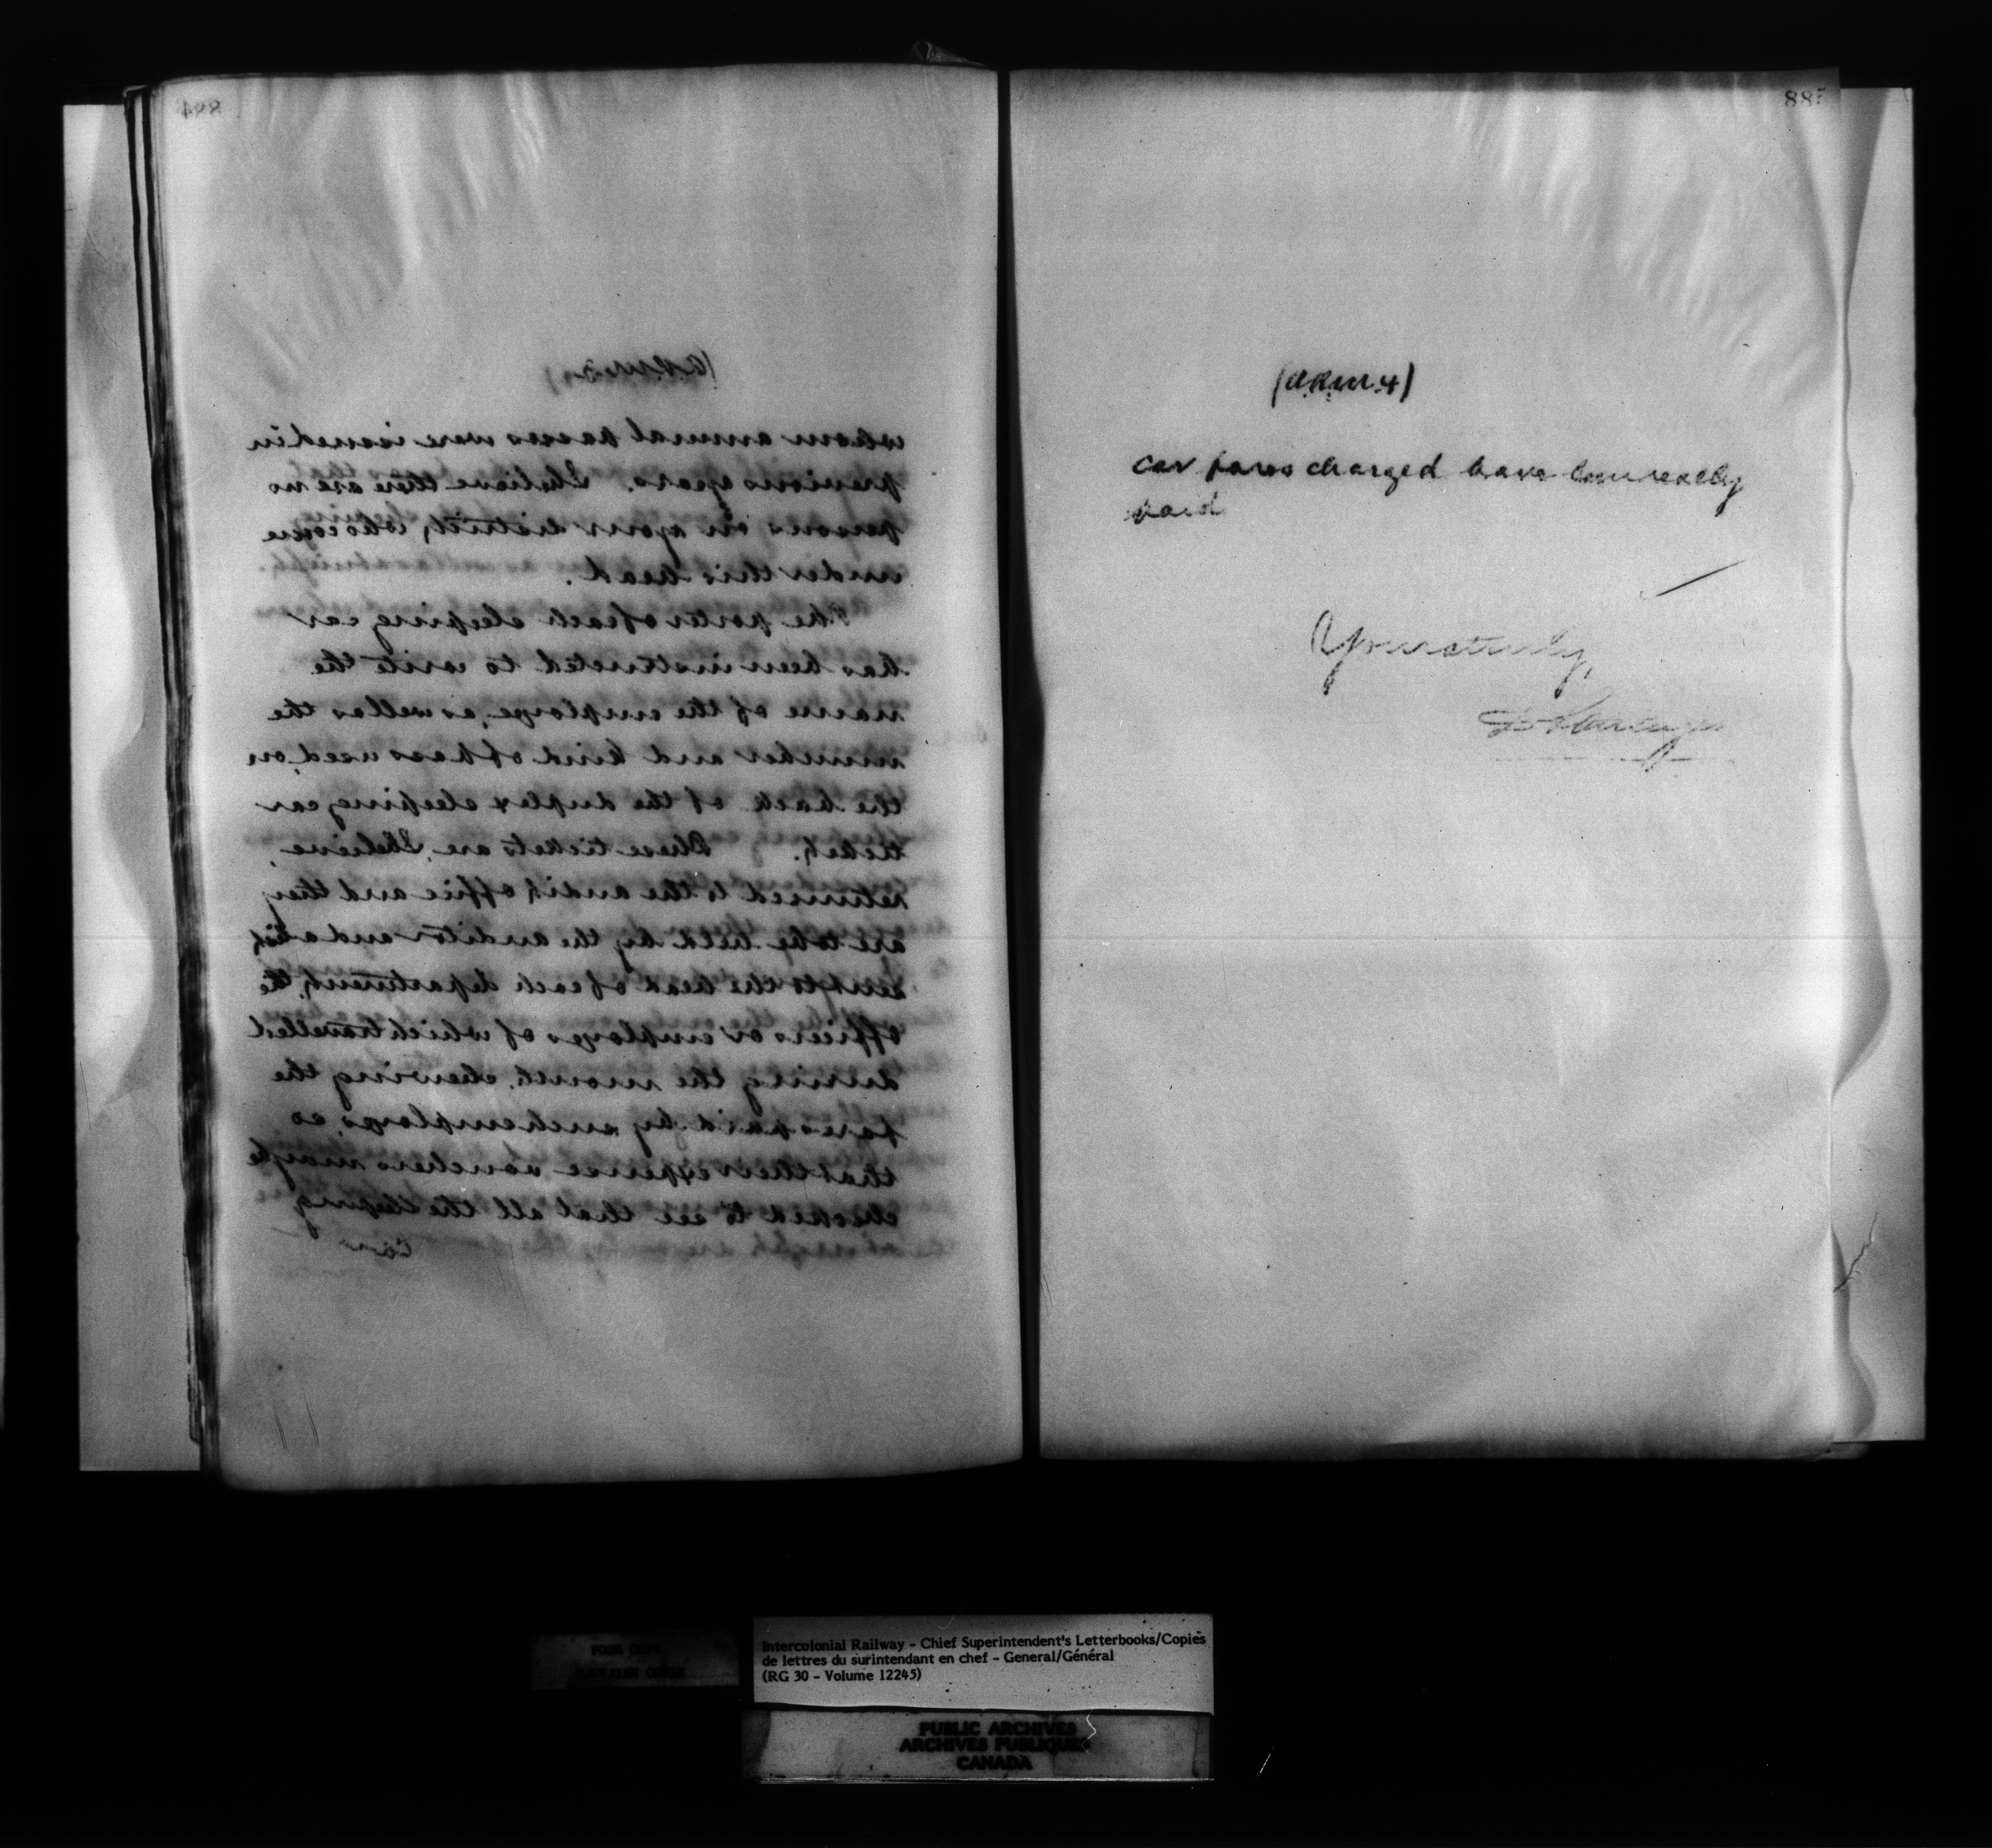 884
(A.R.W. 3)
whom annual passes were issued in
previous years. I believe there are no
persons on your district, who come
under this head.
The porter of each sleeping car
has been instructed to write the
name of the employe, as well as the
number and kind of pass used, on
the back of the duplex sleeping car
ticket. These tickets are, I believe,
returned to the audit office and they
are to be held by the auditor and a list
sent to the head of each department, the
officers or employes of which travelled
during the month, shewing the
fares paid by such employes, so
that their expense vouchers may be
checked to see that all the sleeping
Car
885
(A.R.W. 4)
car fares charged have been really
paid.
Yours truly,
Intercolonial Railway - Chief Superintendent's Letterbooks/Copies
de lettres du surintendant en chef - General/Général
(RG 30 - Volume 12245)
PUBLIC ARCHIVES
ARCHIVES PUBLIQUES
CANADA